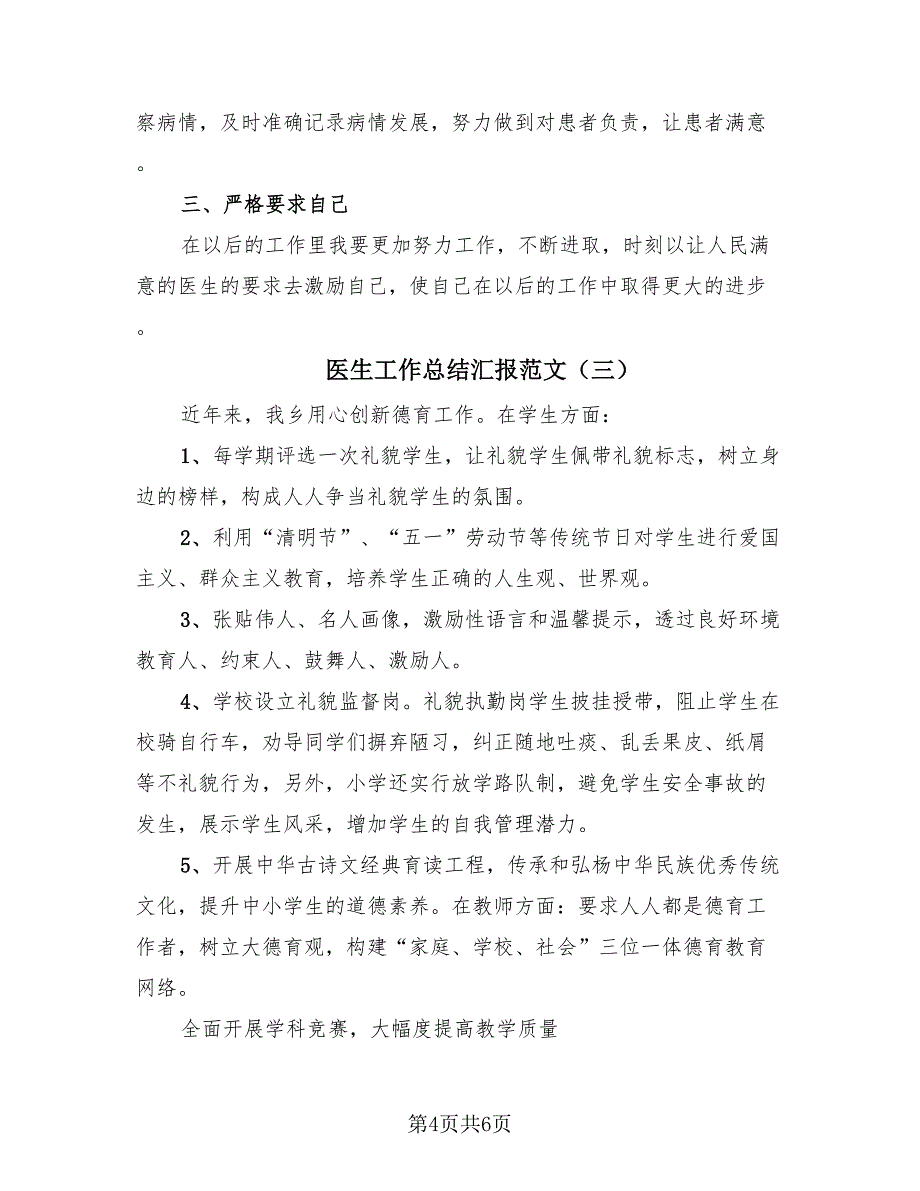 察病情，及时准确记录病情发展，努力做到对患者负责，让患者满意
。
三、严格要求自己
在以后的工作里我要更加努力工作，不断进取，时刻以让人民满
意的医生的要求去激励自己，使自己在以后的工作中取得更大的进步
。
医生工作总结汇报范文（三）
近年来，我乡用心创新德育工作。在学生方面：
1、每学期评选一次礼貌学生，让礼貌学生佩带礼貌标志，树立身
边的榜样，构成人人争当礼貌学生的氛围。
2、利用“清明节”、“五一”劳动节等传统节日对学生进行爱国
主义、群众主义教育，培养学生正确的人生观、世界观。
3、张贴伟人、名人画像，激励性语言和温馨提示，透过良好环境
教育人、约束人、鼓舞人、激励人。
4、学校设立礼貌监督岗。礼貌执勤岗学生披挂授带，阻止学生在
校骑自行车，劝导同学们摒弃陋习，纠正随地吐痰、乱丢果皮、纸屑
等不礼貌行为，另外，小学还实行放学路队制，避免学生安全事故的
发生，展示学生风采，增加学生的自我管理潜力。
5、开展中华古诗文经典育读工程，传承和弘杨中华民族优秀传统
文化，提升中小学生的道德素养。在教师方面：要求人人都是德育工
作者，树立大德育观，构建“家庭、学校、社会”三位一体德育教育
网络。
全面开展学科竞赛，大幅度提高教学质量
第4页共6页